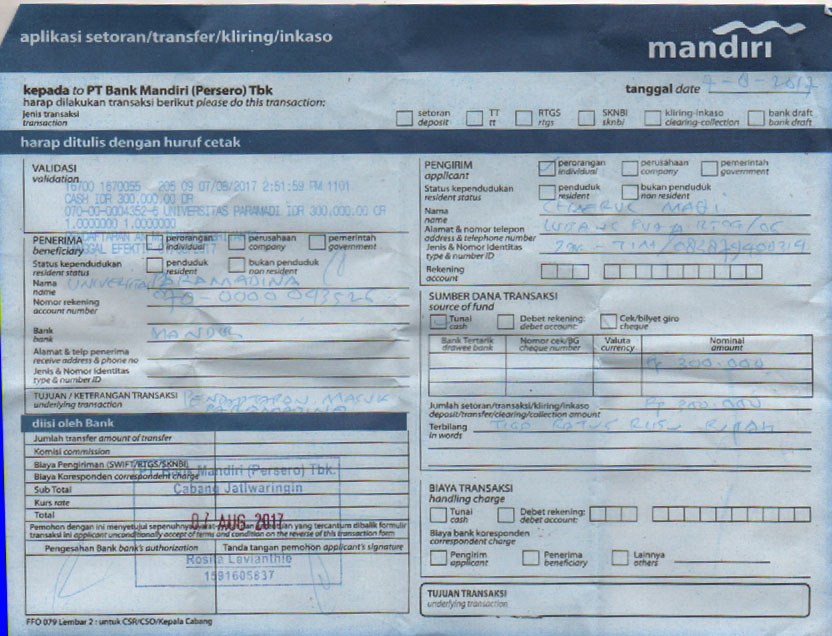 aplikasi setoran/transfer/kliring/inkaso
mandiri
kepada to PT Bank Mandiri (Persero) Tbk
tanggal date
harap dilakukan transaksi berikut please do this transaction:
jenis transaksi
transaction
setoran
deposit
TT
tt
RTGS
rtgs
SKNBI
sknbi
kliring-inkaso
clearing-collection
bank draft
bank draft
harap ditulis dengan huruf cetak
VALIDASI
validation
16700 1670055 205 09 07/08/2017 2:51:59 PM 1101
CASH IDR 300,000.00 DR
070-00-0004352-6 UNIVERSITAS PARAMADI IDR 300,000.00 CR
1.0000000 1.0000000
PENERIMA
beneficiary
perorangan
individual
perusahaan
company
pemerintah
government
Status kependudukan
resident status
penduduk
resident
bukan penduduk
non resident
Nama
name
UNIVERSITAS PARAMADINA
Nomor rekening
account number
Bank
bank
MANDIRI
Alamat & telp penerima
receive address & phone no
Jenis & Nomor Identitas
type & number ID
TUJUAN / KETERANGAN TRANSAKSI
underlying transaction
PENDAFTARAN MASUK
PARAMADINA
diisi oleh Bank
Jumlah transfer amount of transfer
Komisi commission
Biaya Pengiriman (SWIFT/RTGS/SKNBI)
Biaya Koresponden correspondent charge
Sub Total
Kurs rate
Total
PT. Bank Mandiri (Persero) Tbk.
Cabang Jatiwaringin
07 AUG 2017
Pemohon dengan ini menyetujui sepenuhnya yang tercantum dibalik formulir
transaksi ini applicant unconditionally accept of terms and condition on the reverse of this transaction form
Pengesahan Bank bank's authorization
Tanda tangan pemohon applicant's signature
Rosita Levianthie
1591605837
FFO 079 Lembar 2 : untuk CSR/CSO/Kepala Cabang
PENGIRIM
applicant
perorangan
individual
perusahaan
company
pemerintah
government
Status kependudukan
resident status
penduduk
resident
bukan penduduk
non resident
Nama
name
Alamat & nomor telepon
address & telephone number
Jenis & Nomor Identitas
type & number ID
Rekening
account
SUMBER DANA TRANSAKSI
source of fund
Tunai
cash
Debet rekening:
debet account:
Cek/bilyet giro
cheque
Bank Tertarik
drawee bank
Nomor cek/BG
cheque number
Valuta
currency
Nominal
amount
Rp 300.000
Jumlah setoran/transaksi/kliring/inkaso
deposit/transfer/clearing/collection amount
Rp 300.000
Terbilang
in words
TIGA RATUS RIBU RUPIAH
BIAYA TRANSAKSI
handling charge
Tunai
cash
Debet rekening:
debet account:
Biaya bank koresponden
correspondent charge
Pengirim
applicant
Penerima
beneficiary
Lainnya
others
TUJUAN TRANSAKSI
underlying transaction